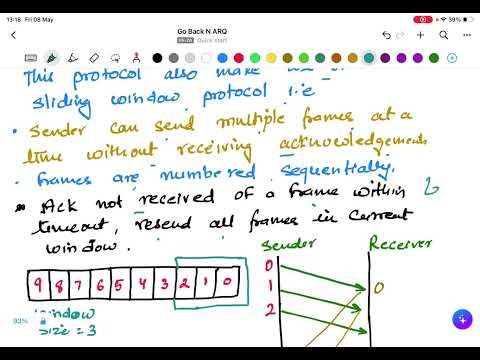 13:18 Fri 08 May
Go Back N ARQ
Quick start
39%
This protocol also make
sliding window protocol i.e
• Sender can send multiple frames at a
time without receiving acknowledgements
• Frames are numbered sequentially.
• Ack not received of a frame within
timeout, resend all frames in current
window.
Sender Receiver
9 8 7 6 5 4 3 2 1 0
0
1 0
2
window
size = 3
93%